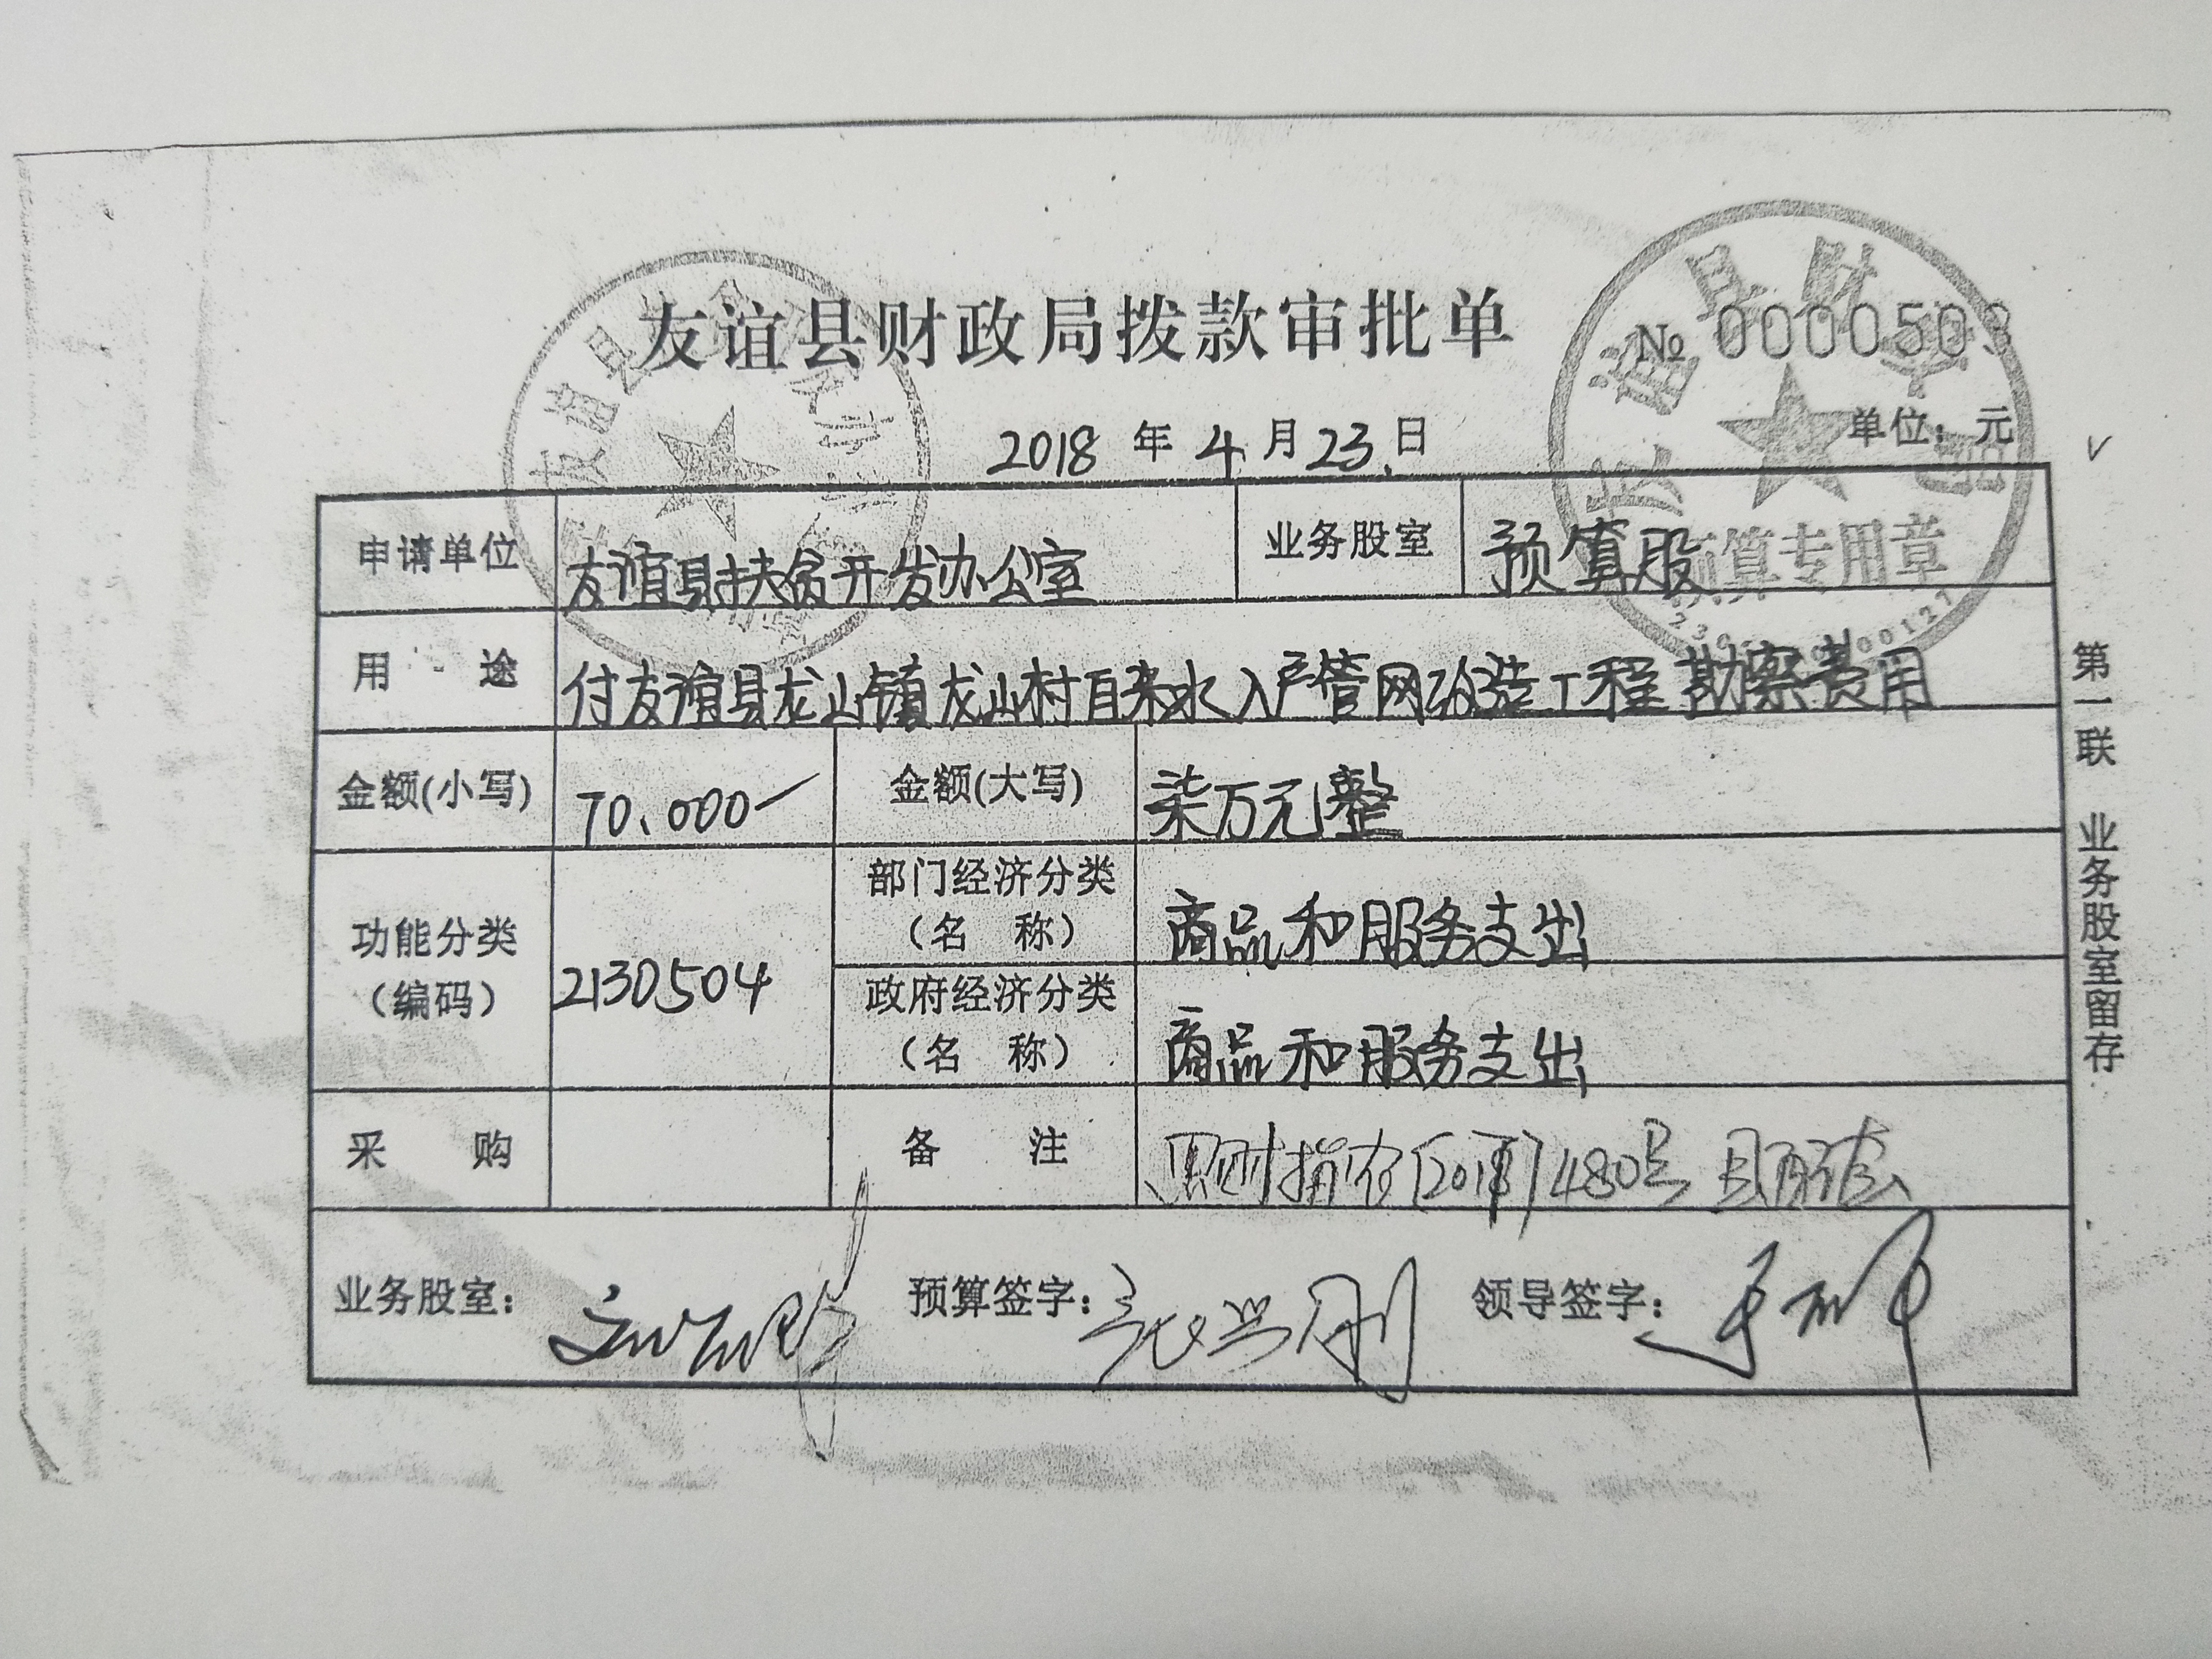 友谊县财政局拨款审批单
№ 0000503
2018 年 4 月 23 日
单位：元
申请单位 友谊县扶贫开发办公室 业务股室 预算股
用 途 付友谊县龙山镇龙山村自来水入户管网改造工程勘察费用
金额(小写) 70.000 金额(大写) 柒万元整
功能分类（编码） 2130504
部门经济分类（名 称） 商品和服务支出
政府经济分类（名 称） 商品和服务支出
采 购 备 注 黑财指农〔2018〕480号
业务股室： 预算签字： 领导签字：
第一联 业务股室留存
友谊县
友谊县财政局
预算专用章